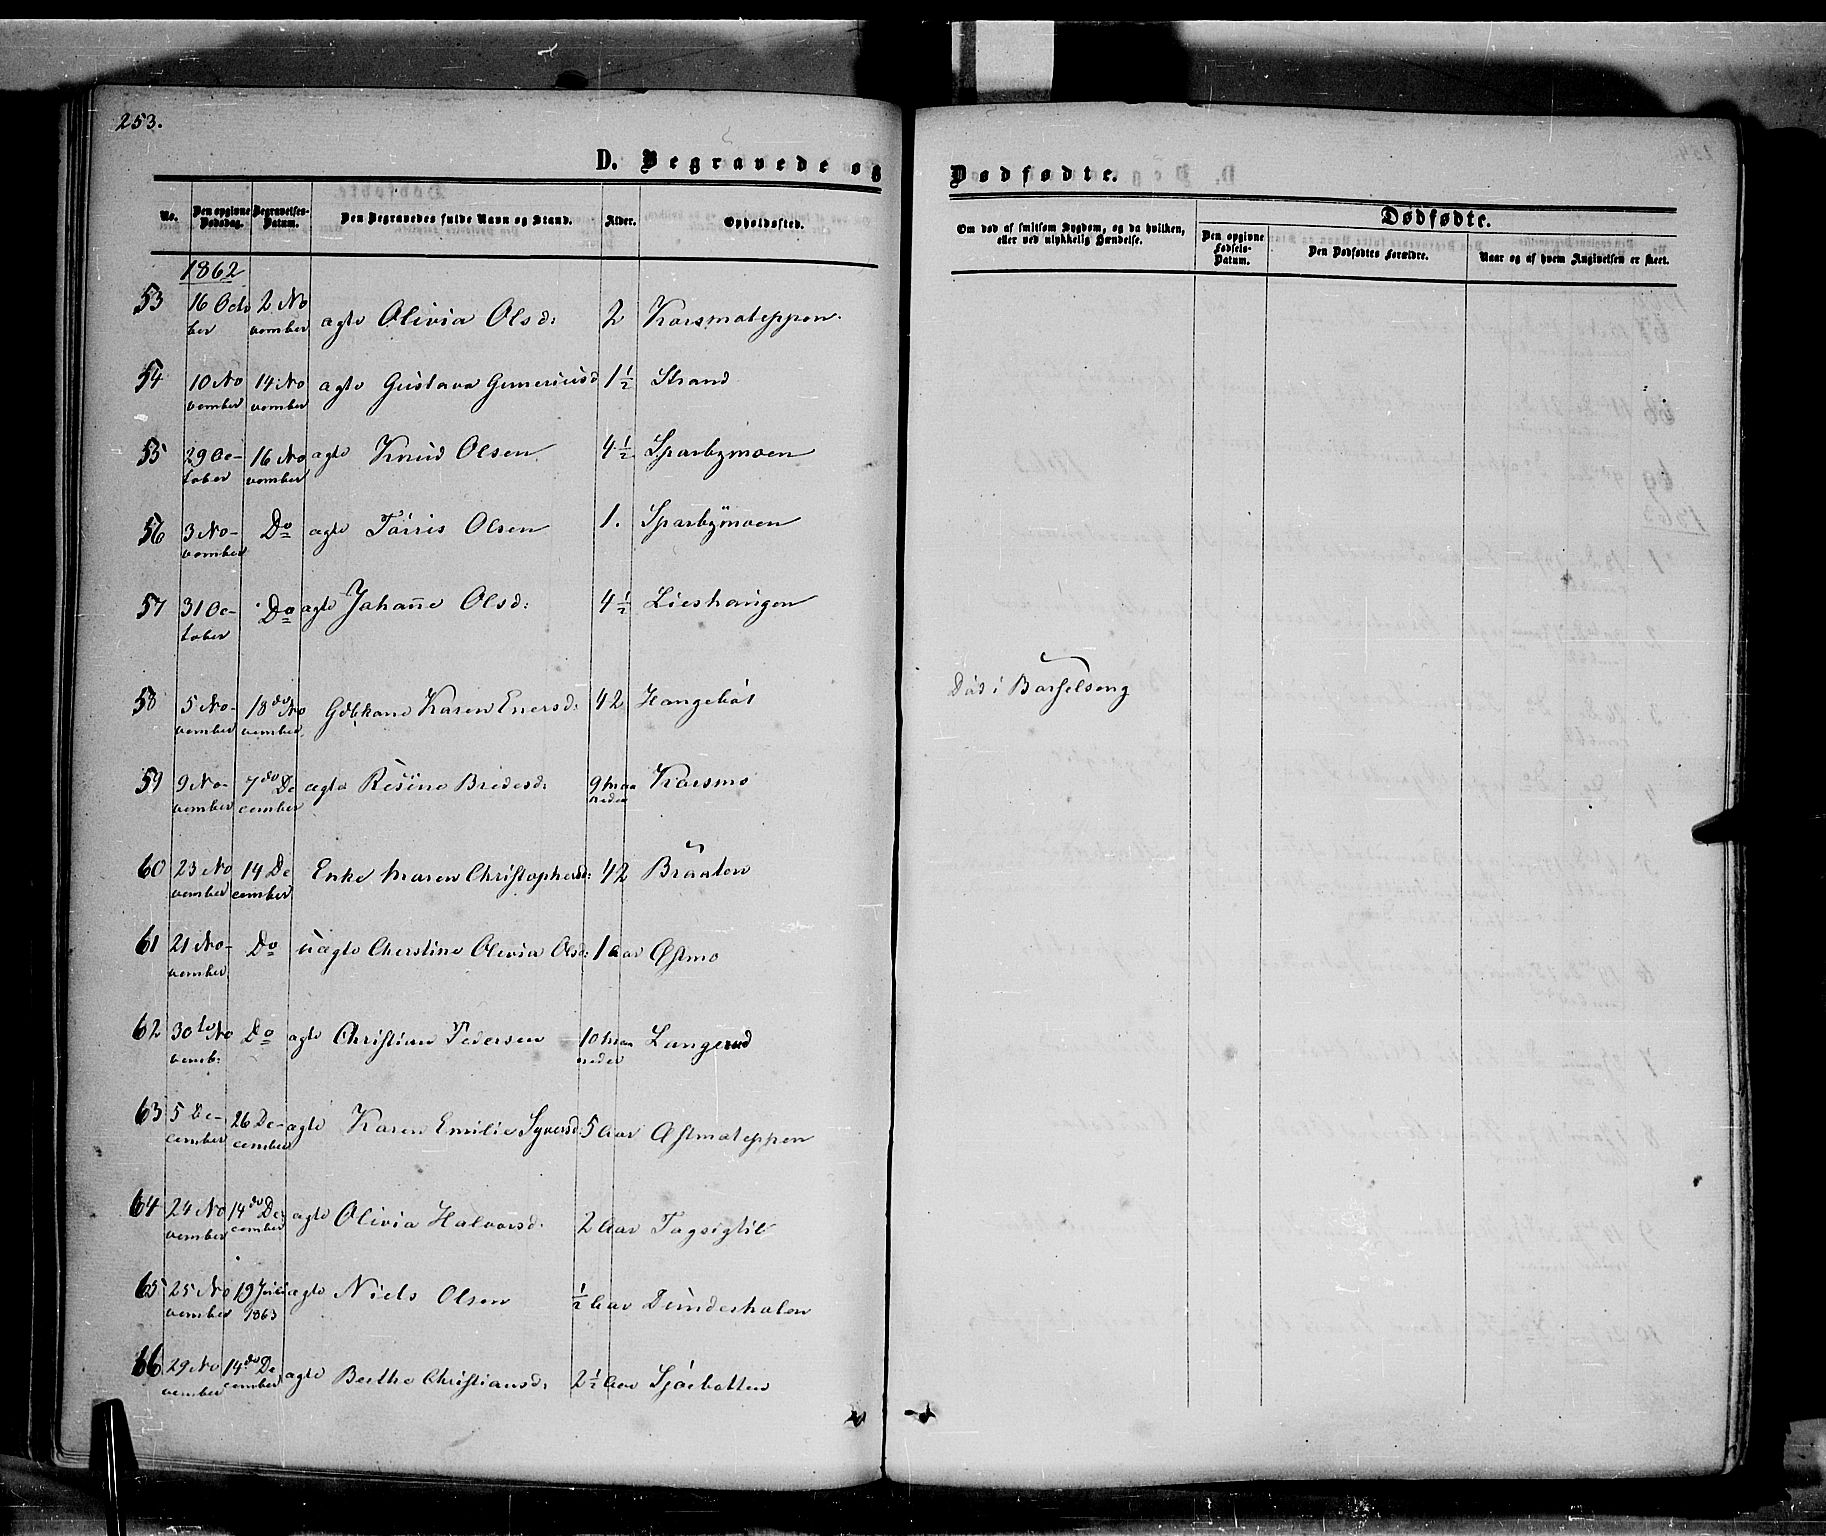 253.
D. Begravede og
Dødfødte.
No. Den opgivne Dødsdag. Begravelses-Datum. Den Begravedes fulde Navn og Stand. Alder. Opholdssted.
Om død af smitsom Sygdom, og da hvilken, eller ved ulykkelig Hændelse.
Dødfødte.
Den opgivne Fødsels-Datum. Den Dødfødtes Forældre. Naar og af hvem Angivelsen er skeet.
1862
53 16 October 2 November ægte Olivia Olsd: 2 Karsmoteppen.
54 10 November 14 November ægte Gustava Guneriusd 1½ Strand
55 29 October 16 November ægte Knud Olsen 4½ Sparbymoen
56 3 November Do ægte Tørris Olsen 1. Sparbymoen
57 31 October Do ægte Johanne Olsd: 4½ Lieshaugen
58 5 November 18de November Gdbkone Karen Enersd: 42 Hangebøl
Død i Barselseng
59 9 November 7de December ægte Resine Bredesd: 9 maaneder Karsmo
60 23 November 14 December Enke Maren Christophersd: 42 Braaten
61 21 November Do uægte Cherstine Olivia Olsd: 1 aar Østmo
62 30te Novemb: Do ægte Christian Pedersen 10 maaneder Langerud
63 5 December 26 December ægte Karen Emilie Syversd: 5 Aar Østmoteppen
64 24 November 14de December ægte Olivia Halvorsd. 2 Aar
65 25 November 19 Juli 1863 ægte Niels Olsen ½ Aar Dunderholen
66 29 November 14de December ægte Berthe Christiansd: 2½ Aar